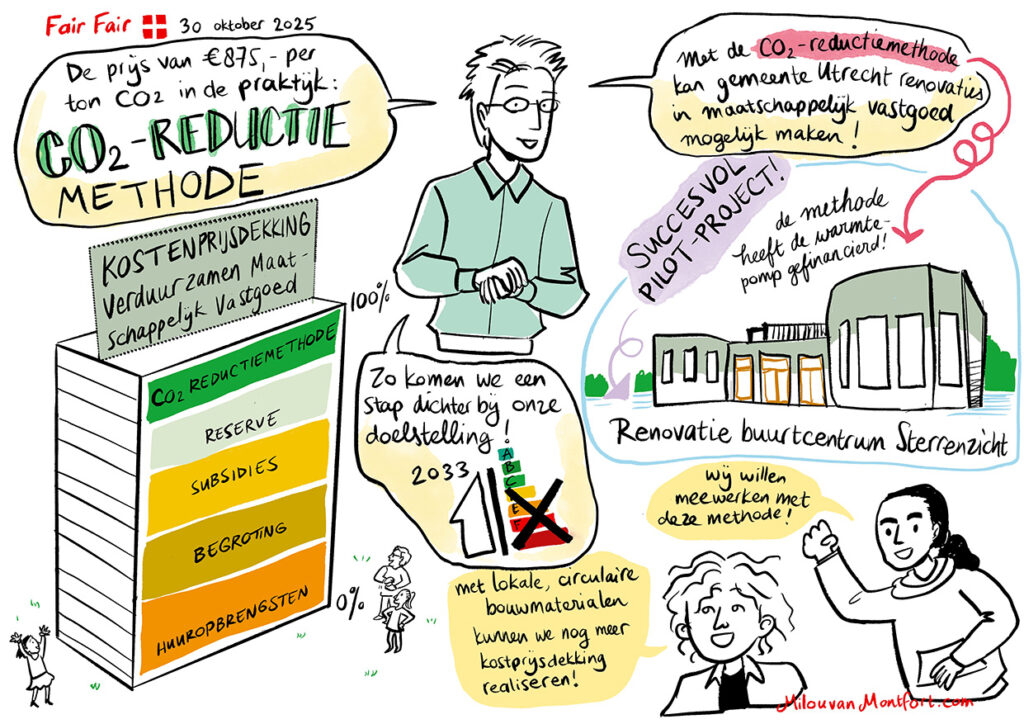 Fair Fair 30 oktober 2025
De prijs van €875,- per
ton CO2 in de praktijk:
CO2-REDUCTIE
METHODE
KOSTENPRIJSDEKKING
Verduurzamen Maat-
schappelijk Vastgoed
100%
CO2 REDUCTIEMETHODE
RESERVE
SUBSIDIES
BEGROTING
HUUROPBRENGSTEN
0%
Zo komen we een
stap dichter bij onze
doelstelling!
2033
A
B
C
E
F
Met de CO2-reductiemethode
kan gemeente Utrecht renovaties
in maatschappelijk vastgoed
mogelijk maken!
SUCCESVOL
PILOT-PROJECT!
de methode
heeft de warmte-
pomp gefinancierd!
Renovatie buurtcentrum Sterrenzicht
wij willen
meewerken met
deze methode!
met lokale, circulaire
bouwmaterialen
kunnen we nog meer
kostprijsdekking
realiseren!
MilouvanMontfort.com